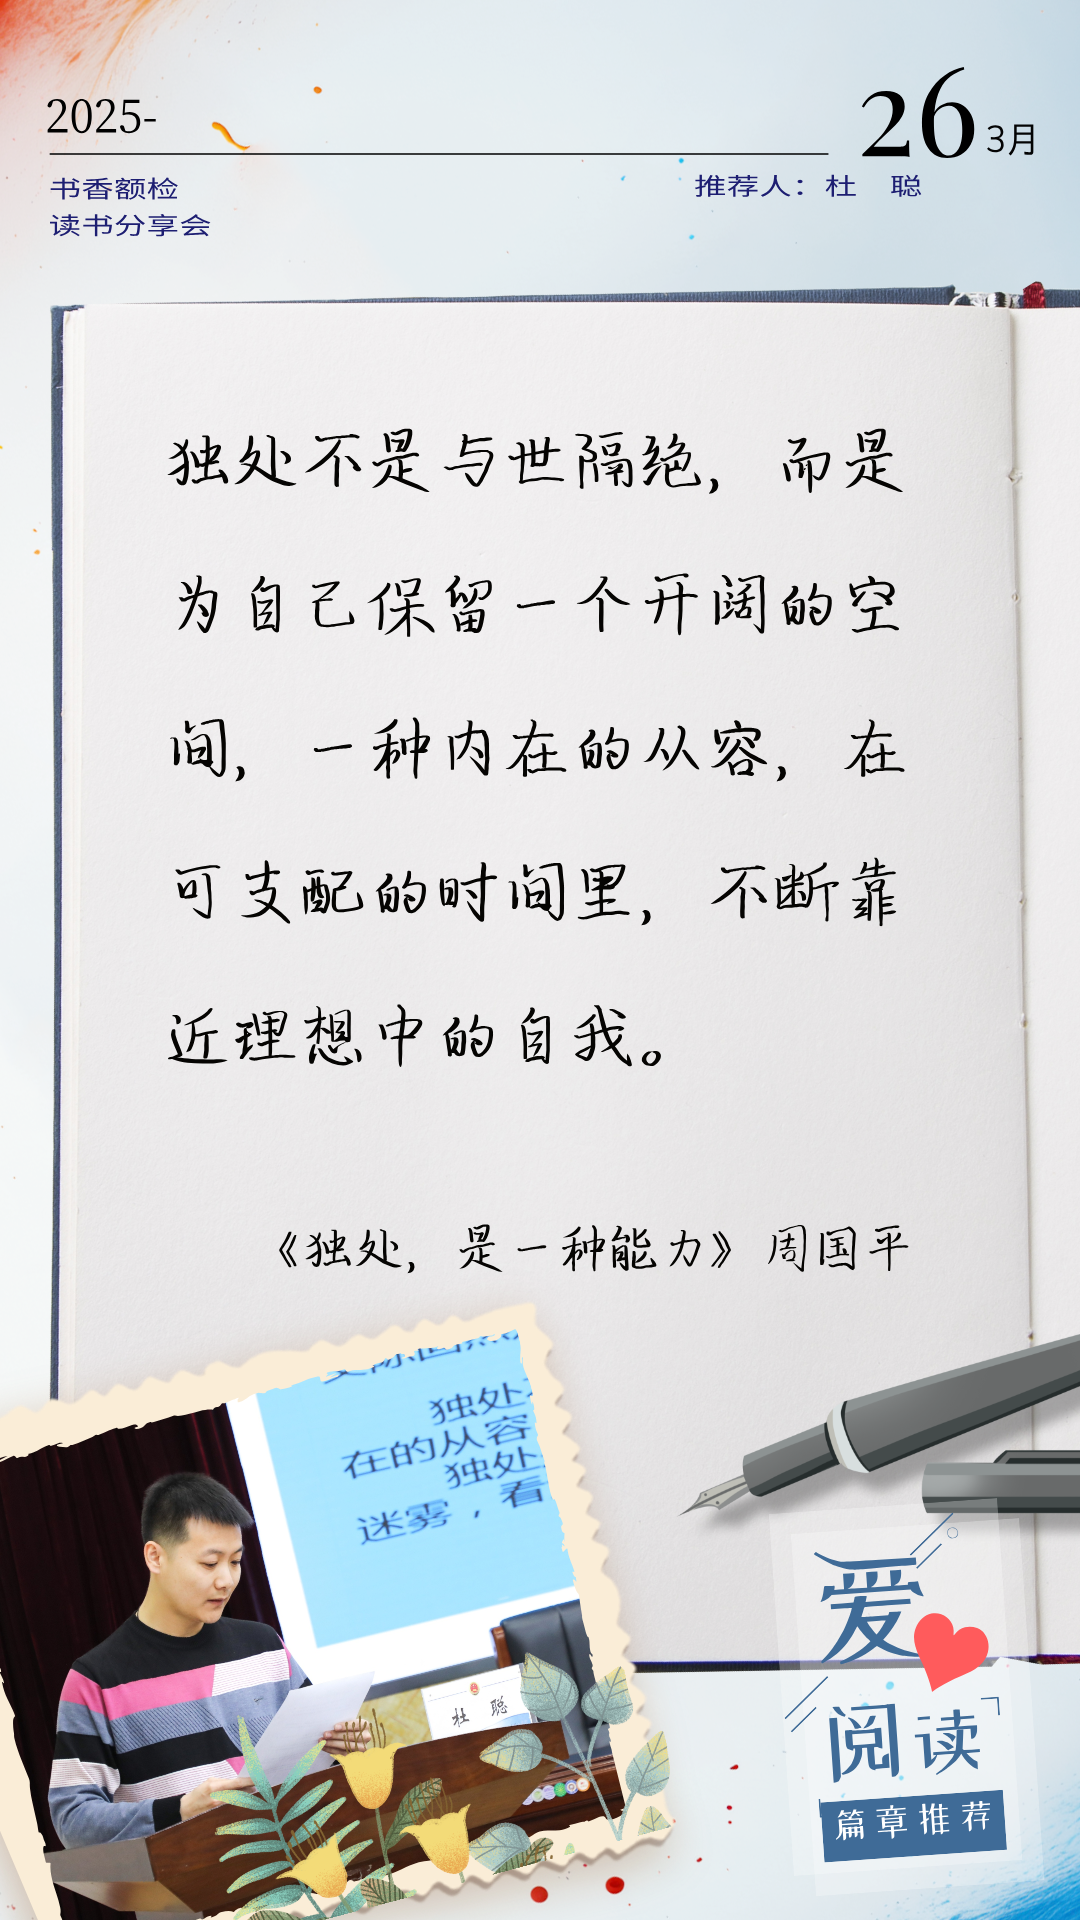 2025-
26 3月
书香额检
读书分享会
推荐人：杜 聪
独处不是与世隔绝，而是
为自己保留一个开阔的空
间，一种内在的从容，在
可支配的时间里，不断靠
近理想中的自我。
《独处，是一种能力》周国平
独处
在的从容
独处
迷雾，看
杜 聪
爱
阅读
篇章推荐